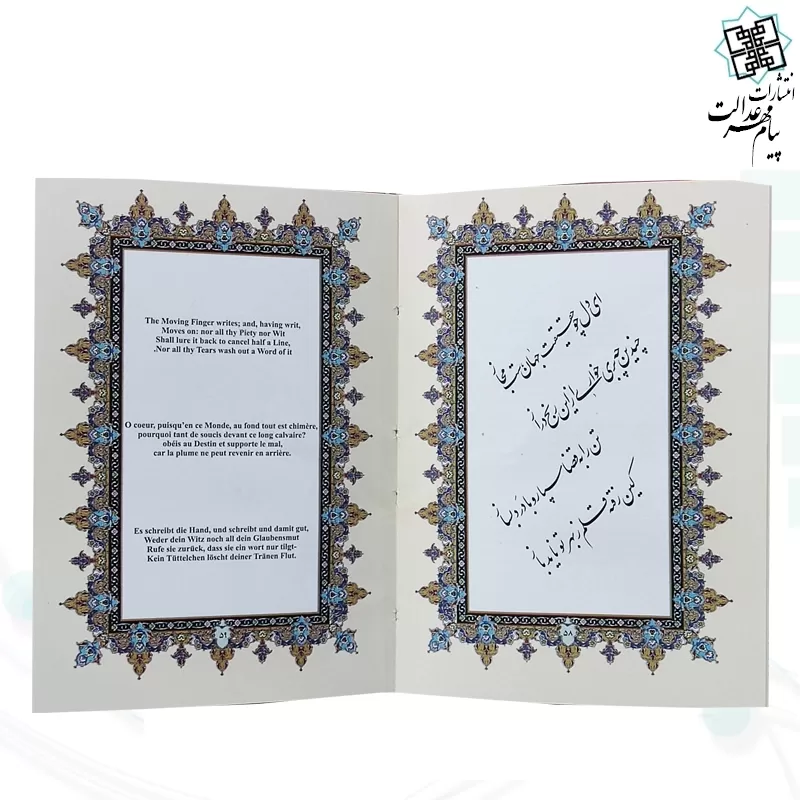 انتشارات
پیام مهر عدالت
The Moving Finger writes; and, having writ,
Moves on: nor all thy Piety nor Wit
Shall lure it back to cancel half a Line,
.Nor all thy Tears wash out a Word of it
O coeur, puisqu'en ce Monde, au fond tout est chimère,
pourquoi tant de soucis devant ce long calvaire?
obéis au Destin et supporte le mal,
car la plume ne peut revenir en arrière.
Es schreibt die Hand, und schreibt und damit gut,
Weder dein Witz noch all dein Glaubensmut
Rufe sie zurück, dass sie ein wort nur tilgt-
Kein Tüttelchen löscht deiner Tränen Flut.
ای دل چو حقیقت جهان هست مجاز
چندین چه بری خواری ازین رنج دراز
تن را به قضا سپار و با درد بساز
کین رفته قلم ز بهر تو ناید باز
۵۸